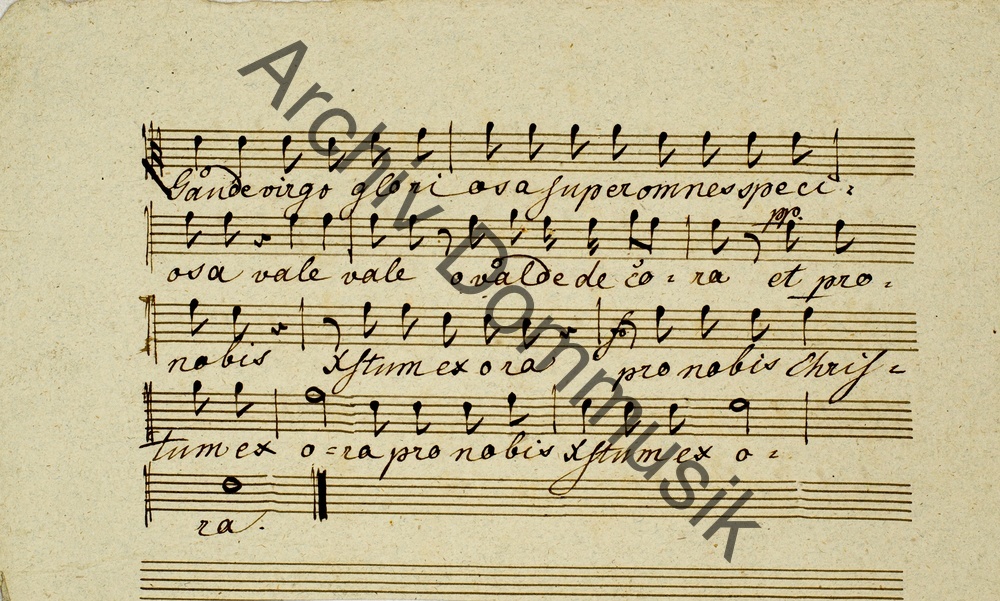 Gaude virgo glori osa super omnes speci-
pp:
osa vale vale o valde de co-ra et pro-
fo
nobis Xstum ex ora pro nobis Chris-
tum ex o-ra pro nobis Xstum ex o-
ra.
Archiv Dommusik